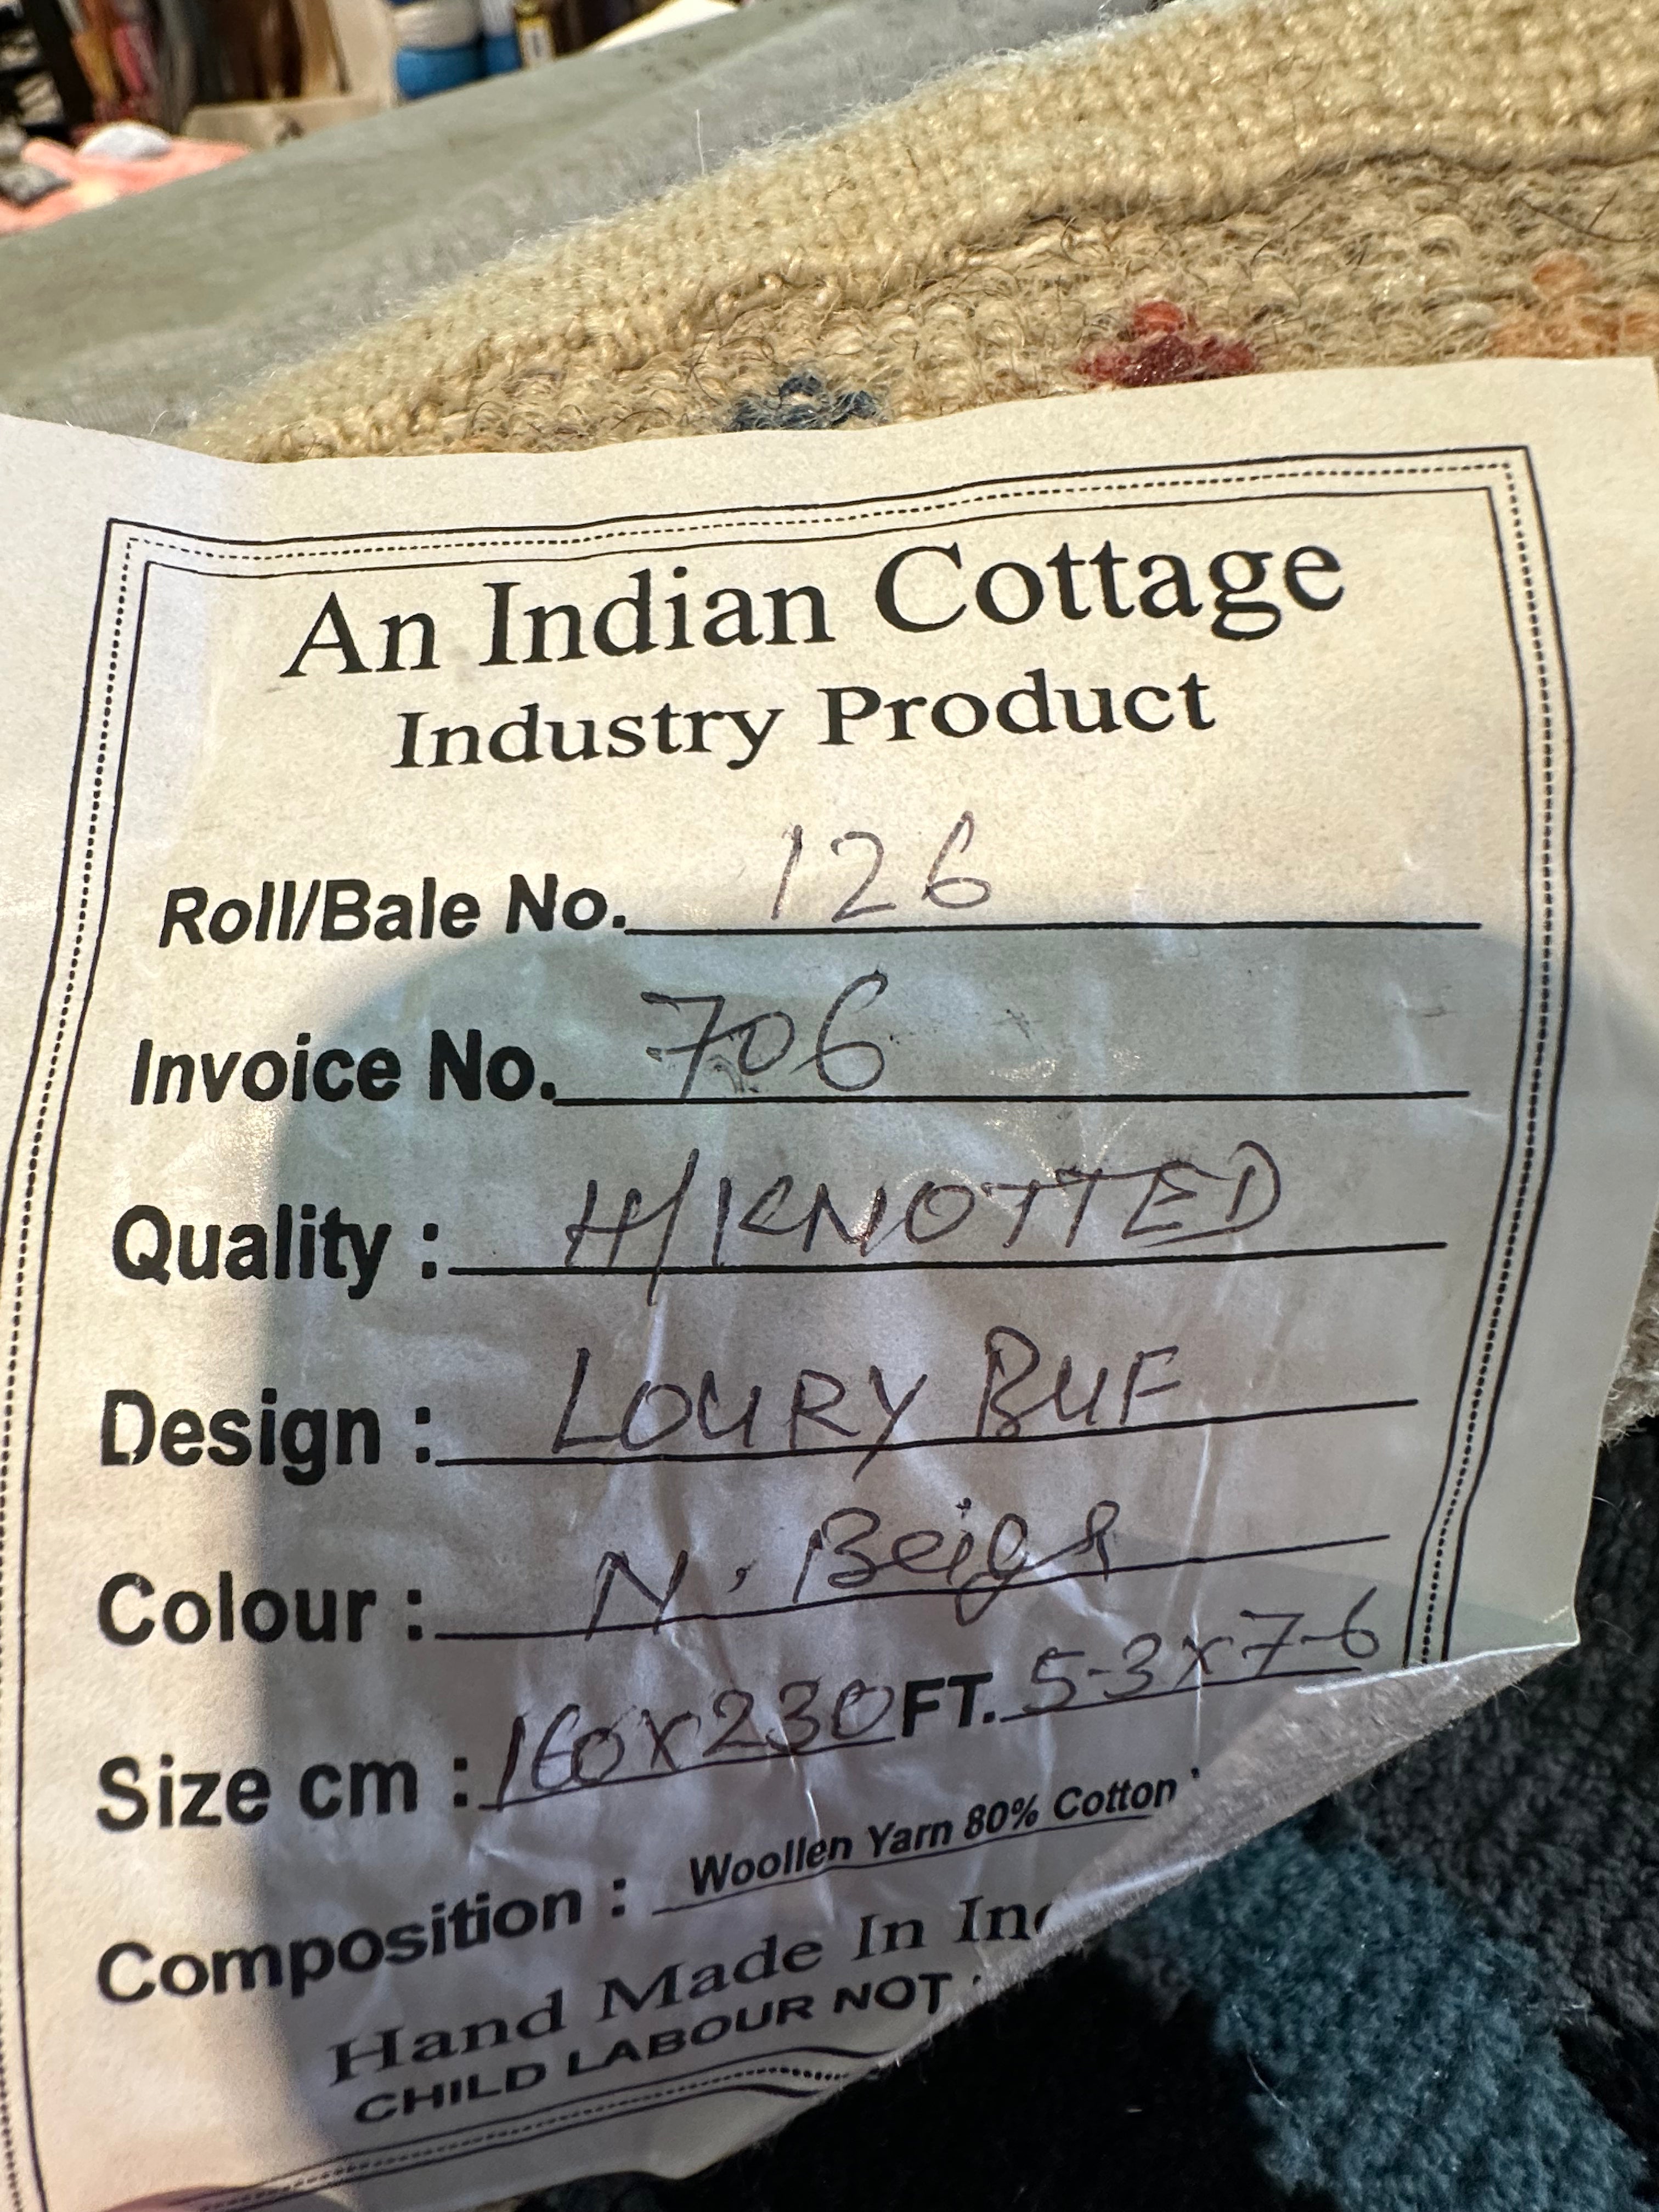 An Indian Cottage
Industry Product
Roll/Bale No. 126
Invoice No. 706
Quality : H/KNOTTED
Design : LOURY BUF
Colour : N. Beige
Size cm : 160x230 FT. 5-3x7-6
Composition : Woollen Yarn 80% Cotton
Hand Made In
CHILD LABOUR NOT